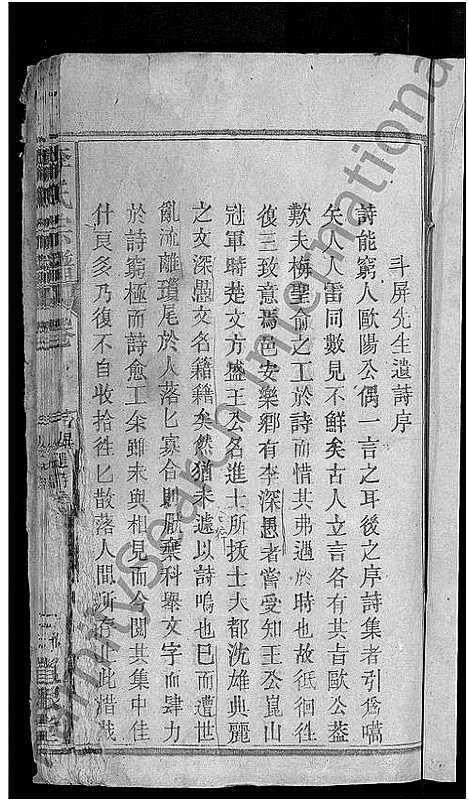 斗屏先生遺詩序
詩能窮人歐陽公偶一言之耳後之序詩集者引爲嚆
矢人人雷同數見不鮮矣古人立言各有其旨歐公葢
歎夫梅聖俞之工於詩而惜其弗遇於時也故徘徊徃
復三致意焉邑安樂鄉有李深愚者嘗受知王公崑山
冠軍時楚文方盛王公名進士所拔士大都沈雄典麗
之文深愚文名籍籍矣然猶未遽以詩鳴也已而遭世
亂流離瑣尾於人落匕寡合則厭棄科舉文字而肆力
於詩窮極而詩愈工余雖未與相見而今閱其集中佳
什頁多乃復不自收拾徃匕散落人間所存止此惜哉
李氏宗譜
InitySearch International